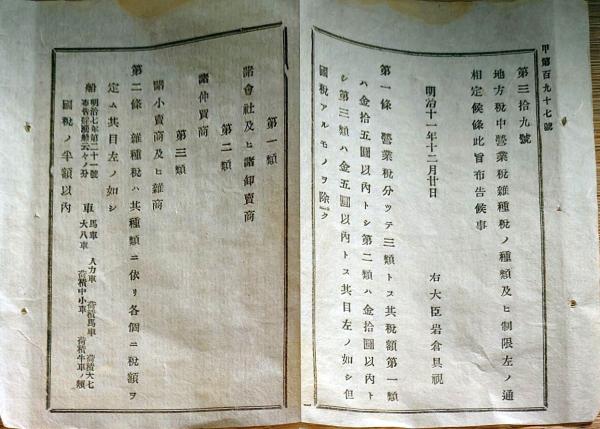 甲第百九十七號
第三拾九號
地方稅中營業稅雜種稅ノ種類及ヒ制限左ノ通
相定候條此旨布告候事
明治十一年十二月廿日
右大臣岩倉具視
第一條 營業稅分ツテ三類トス其稅額第一類
ハ金拾五圓以內トシ第二類ハ金拾圓以內ト
シ第三類ハ金五圓以內トス其目左ノ如シ但
國稅アルモノヲ除ク
一
第一類
諸會社及ヒ諸卸賣商
第二類
諸仲買商
第三類
諸小賣商及ヒ雜商
第二條 雜種稅ハ其種類ニ依リ各個ニ稅額ヲ
定ム其目左ノ如シ
船 明治七年第二十一號
布告 云々ノ分
車 馬車 人力車 荷積馬車 荷積大七
大八車 荷積中小車 荷積牛車ノ類
國稅ノ半額以內